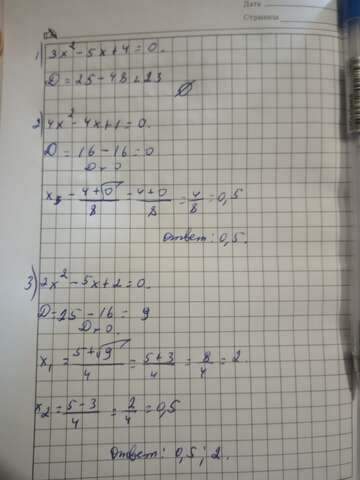 Дата
Страница
1) 3x² - 5x + 4 = 0.
D = 25 - 48 = 23
∅
2) 4x² - 4x + 1 = 0.
D = 16 - 16 = 0
D = 0
x = (4 + √0)/8 = (4 + 0)/8 = 4/8 = 0,5
Ответ: 0,5.
3) 2x² - 5x + 2 = 0.
D = 25 - 16 = 9
D > 0.
x₁ = (5 + √9)/4 = (5 + 3)/4 = 8/4 = 2.
x₂ = (5 - 3)/4 = 2/4 = 0,5
Ответ: 0,5; 2.